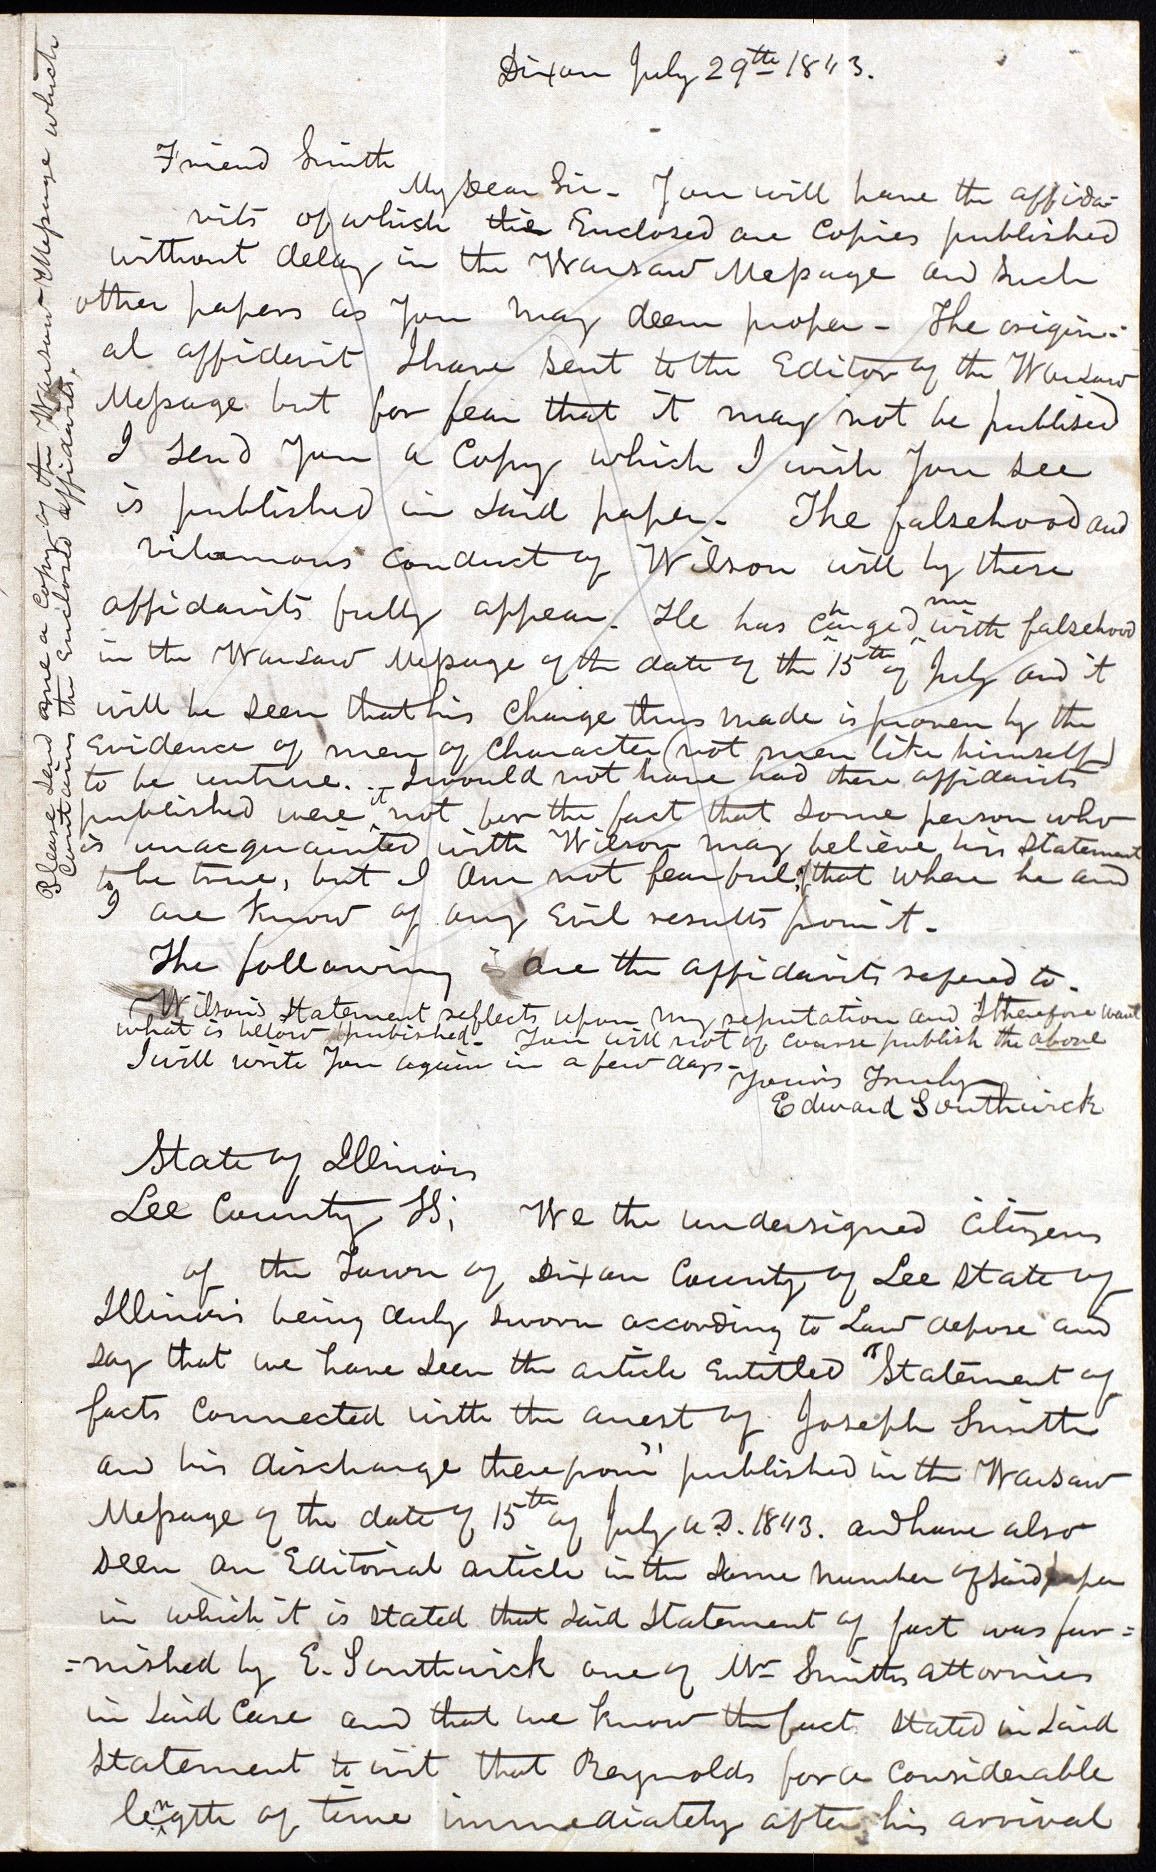 Dixon July 29th 1843.
Friend Smith
My Dear Sir - You will have the affida-
vits of which the Enclosed are Copies published
without delay in the Warsaw Message and such
other papers as You may deem proper - The origin-
al affidavit I have sent to the Editor of the Warsaw
Message but for fear that it may not be publised
I send You a Copy which I wish You see
is published in said paper. The falsehood and
vilanious conduct of Wilson will by these
affidavits fully appear. He has charged me with falsehood
in the Warsaw Message of the date of the 15th of July and it
will be seen that his charge thus made is proven by the
Evidence of men of Character (not men like himself)
to be untrue. I would not have had these affidavits
published were it not for the fact that some person who
is unacquainted with Wilson may believe his statement
to be true, but I am not fearful that where he and
I are know of any Evil results from it.
The following are the affidavits refered to.
Wilson's statement reflects upon my reputation and I therefore want
what is below published. You will not of course publish the above
I will write You again in a few days -
Yours Truly
Edward Southwick
Please send me a Copy of the Warsaw Message which
Contains the Enclosed affidavits.
State of Illinois
Lee County SS; We the undersigned Citizens
of the Town of Dixon County of Lee State of
Illinois being duly sworn according to Law depose and
say that we have seen the article Entitled "Statement of
facts Connected with the arrest of Joseph Smith
and his discharge therefrom" published in the Warsaw
Message of the date of 15th of July A.D. 1843. and have also
seen an Editorial article in the same number of said paper
in which it is stated that said statement of fact was fur=
=nished by E. Southwick one of Mr Smiths attornies
in said Case and that we know the fact stated in said
statement to wit that Reynolds for a considerable
length of time immediately after his arrival